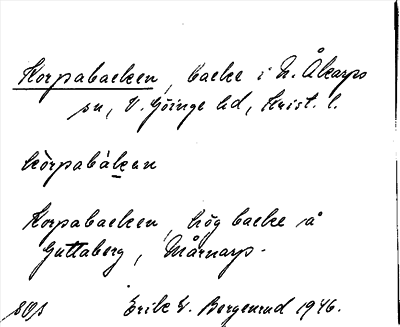 Korpabacken, backe i N. Åkarps
sn, V. Göinge hd, Krist. l.
kòrpabákan
Korpabacken, hög backe å
Guttaberg, Mårnarp.
Erik V. Bergenrud 1946.